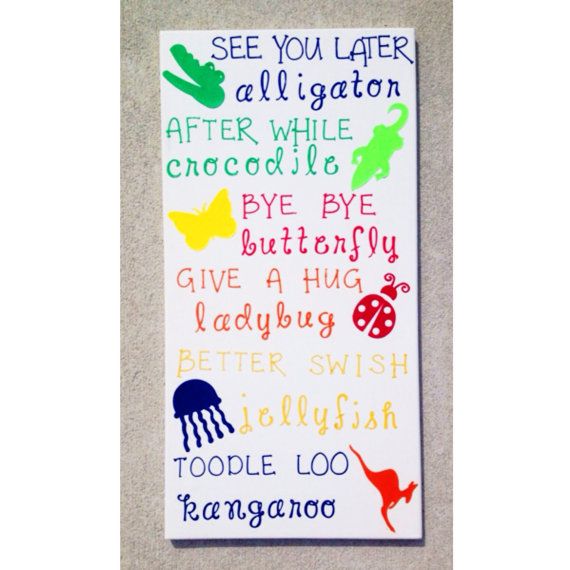 SEE YOU LATER
alligator
AFTER WHILE
crocodile
BYE BYE
butterfly
GIVE A HUG
ladybug
BETTER SWISH
jellyfish
TOODLE LOO
kangaroo